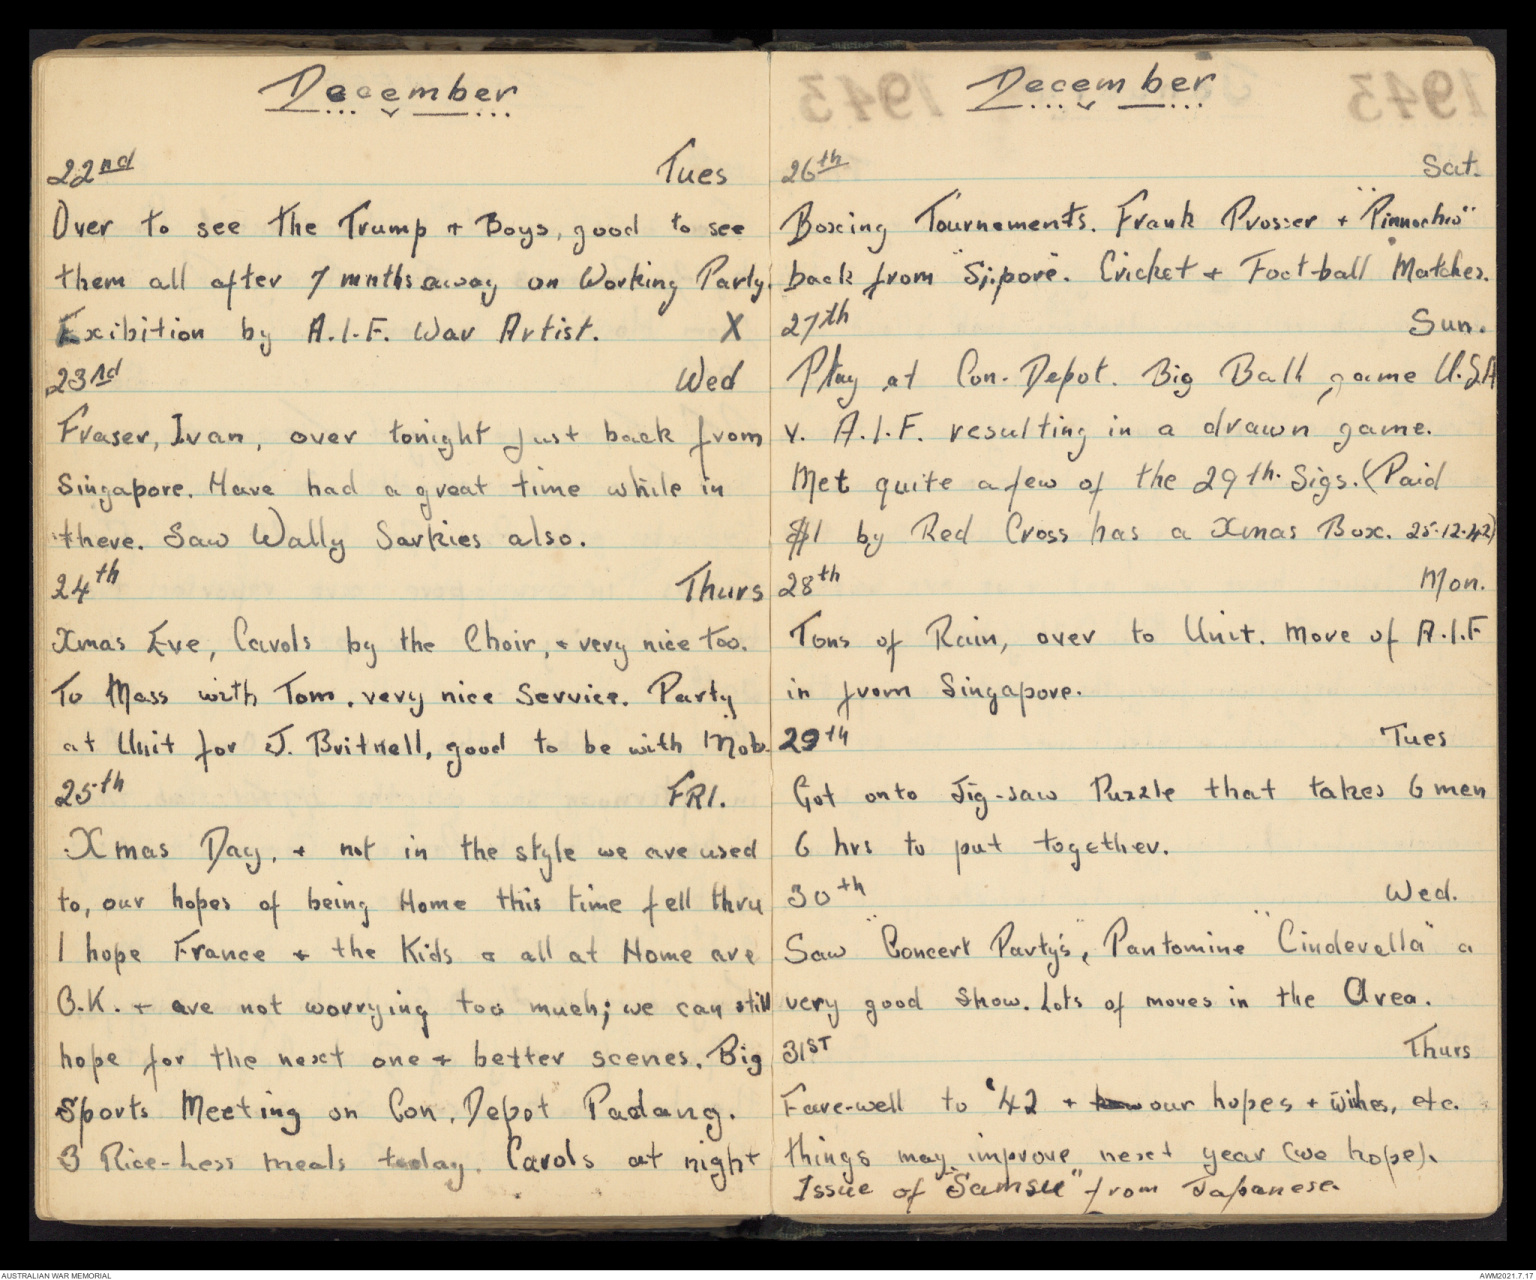 December
22nd Tues
Over to see the Trump + Boys, good to see
them all after 7 mnths away on Working Party.
Exibition by A.I.F. War Artist. X
23rd Wed
Fraser, Ivan, over tonight just back from
Singapore. Have had a great time while in
there. Saw Wally Sarkies also.
24th Thurs
Xmas Eve, Carols by the Choir, + very nice too.
To Mass with Tom, very nice Service. Party
at Unit for J. Britnell, good to be with Mob.
25th FRI.
Xmas Day, + not in the style we are used
to, our hopes of being Home this time fell thru
I hope France + the Kids + all at Home are
O.K. + are not worrying too much; we can still
hope for the next one + better scenes. Big
Sports Meeting on Con. Depot Padang.
3 Rice-less meals today. Carols at night
December
1943 1943
26th Sat.
Boxing Tournements. Frank Prosser + "Pinnochio"
back from "S'pore. Cricket + Foot-ball Matches.
27th Sun.
Play at Con-Depot. Big Ball game U.S.A
v. A.I.F. resulting in a drawn game.
Met quite a few of the 29th. Sigs. (Paid
$1 by Red Cross has a Xmas Box. 25.12.42)
28th Mon.
Tons of Rain, over to Unit. Move of A.I.F
in from Singapore.
29th Tues
Got onto Jig-saw Puzzle that takes 6 men
6 hrs to put together.
30th Wed.
Saw "Concert Party's", Pantomine "Cinderella" a
very good show. Lots of moves in the Area.
31ST Thurs
Fare-well to '42 + our hopes + wihes, etc.
things may improve next year (we hope).
Issue of "Samsu" from Japanese.
AUSTRALIAN WAR MEMORIAL AWM2021.7.17